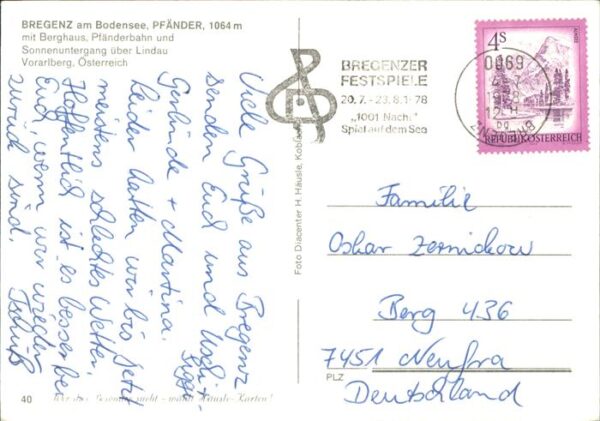 BREGENZ am Bodensee, PFÄNDER, 1064 m
mit Berghaus, Pfänderbahn und
Sonnenuntergang über Lindau
Vorarlberg, Österreich
BREGENZER
FESTSPIELE
20.7.-23.8.1978
„1001 Nacht"
Spiel auf dem See
4S
REPUBLIK ÖSTERREICH
Viele Grüße aus Bregenz
senden Euch und Uschi +
Gerlinde + Martina.
Leider hatten wir bis jetzt
meistens schlechtes Wetter.
Hoffentlich ist es besser bei
Euch, wenn wir wieder
zurück sind.
Tschüß
Foto Diacenter H. Häusle, Koblach
Familie
Oskar Zernickow
Berg 436
7451 Neufra
PLZ
Deutschland
40
Wer das Besondere sucht - wählt Häusle-Karten!